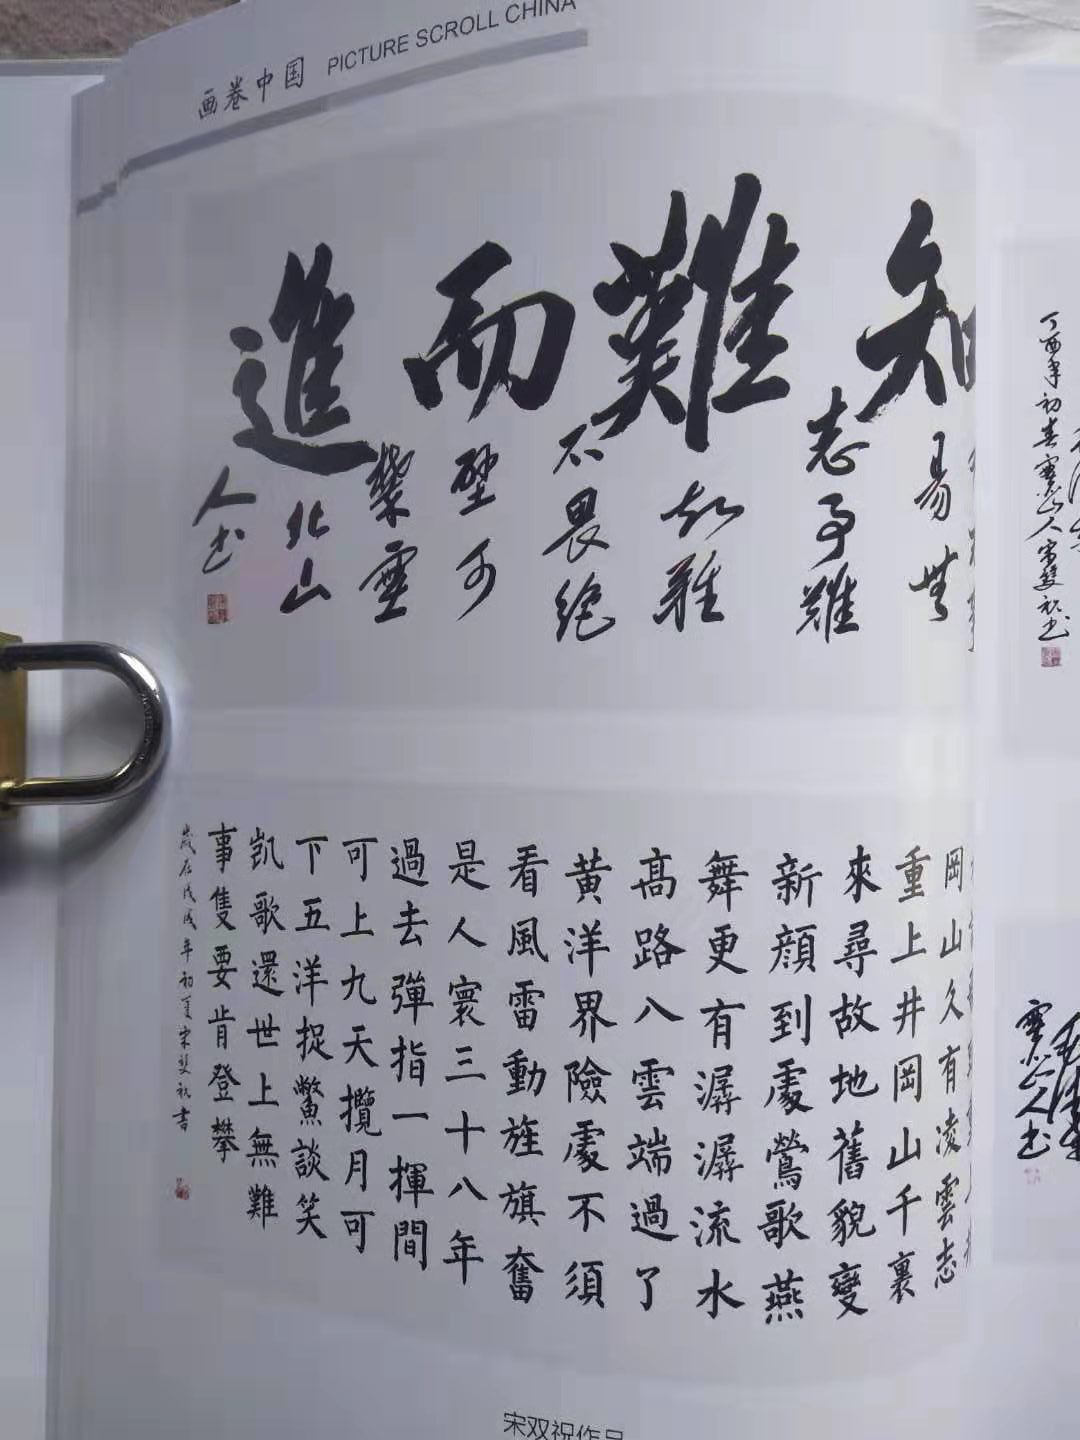 画卷中国 PICTURE SCROLL CHINA
知難而進
易無
志事難
知難
不畏絕
壁可
攀靈
北山
人书
岡山久有凌雲志
重上井岡山千裏
來尋故地舊貌變
新顔到處鶯歌燕
舞更有潺潺流水
高路入雲端過了
黄洋界險處不須
看風雷動旌旗奮
是人寰三十八年
過去彈指一揮間
可上九天攬月可
下五洋捉鱉談笑
凱歌還世上無難
事隻要肯登攀
歲在戊戌年初夏宋双祝書
宋双祝作品
丁酉年初春靈山人宋双祝书
靈山人书